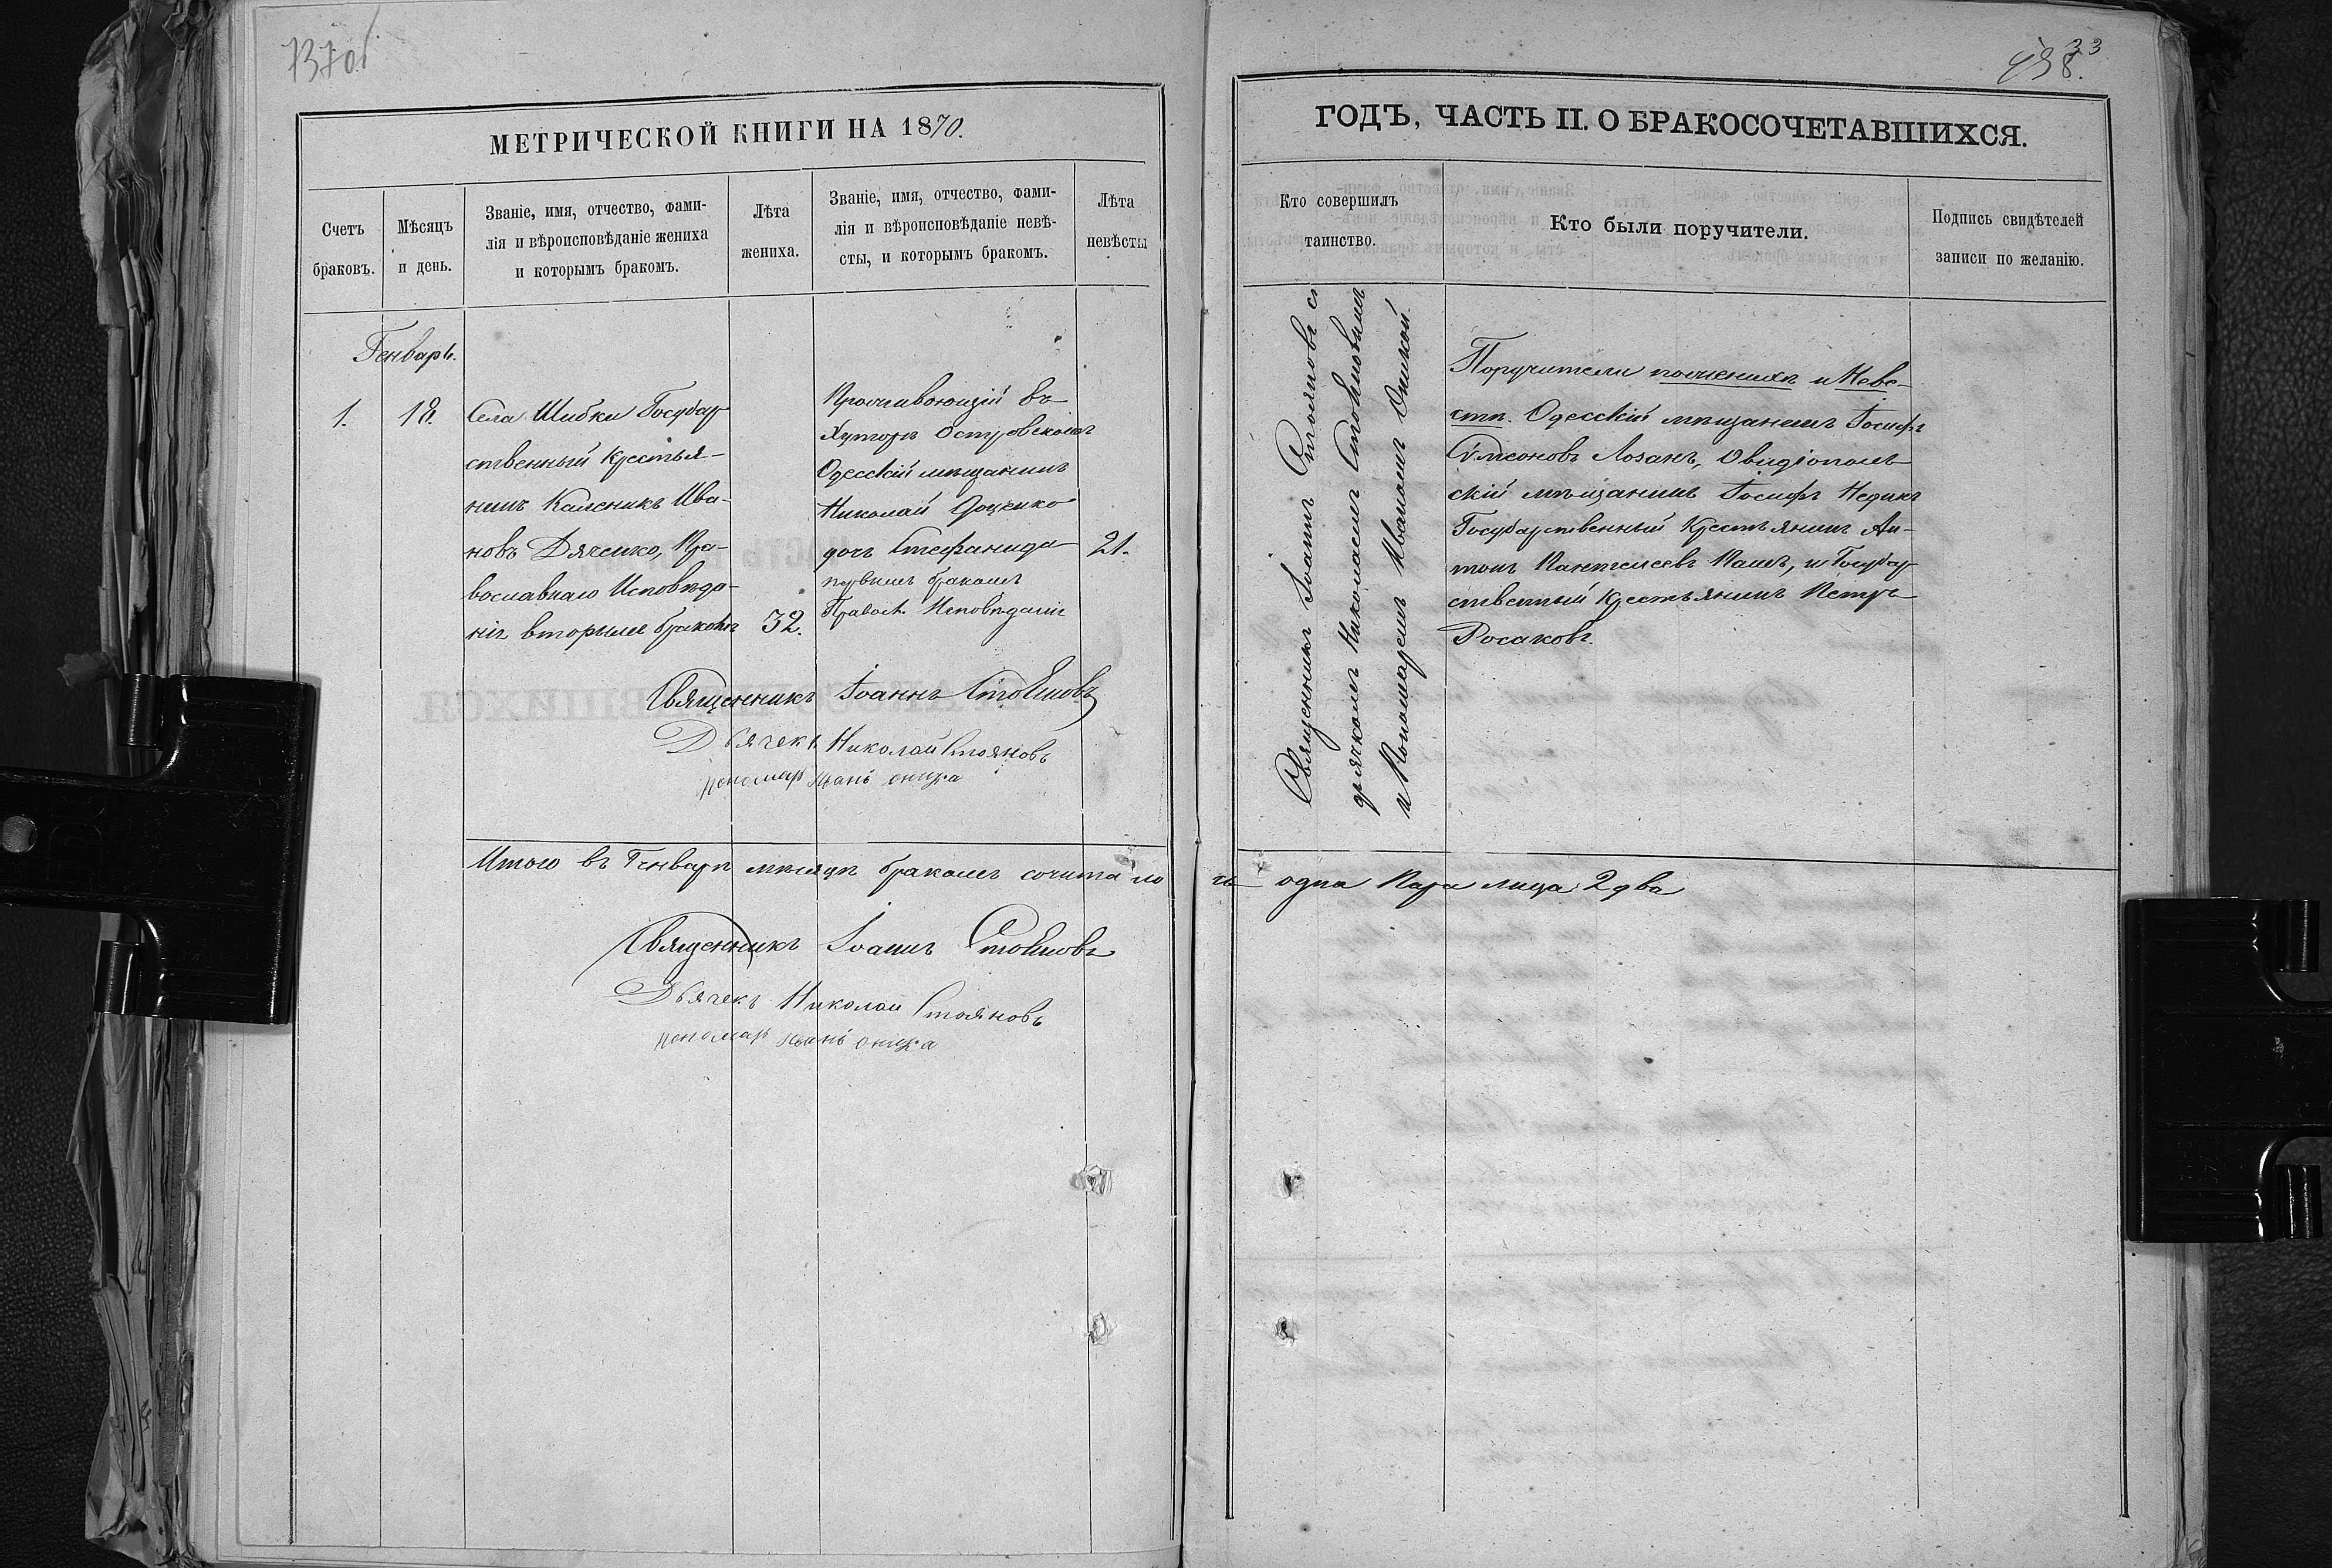 МЕТРИЧЕСКОЙ КНИГИ НА 1870.
Счетъ браковъ.
Мѣсяцъ и день.
Званіе, имя, отчество, фами-
лія и вѣроисповѣданіе жениха
и которымъ бракомъ.
Лѣта
жениха.
Званіе, имя, отчество, фами-
лія и вѣроисповѣданіе невѣ-
сты, и которымъ бракомъ.
Лѣта
невѣсты
Генварь.
1.
18.
Села Шибки Государ
ственный крестья-
нинъ Каленикъ Ива-
новъ Дяченко, Пра-
вославнаго Исповѣда-
нія вторымъ бракомъ
32.
Проживающій въ
Хуторѣ Островскомъ
Одесскій мѣщанинъ
Николай Доценко
дочь Стефанида
первымъ бракомъ
Правосл. Исповѣданія
21.
Священникъ Іоаннъ Стояновъ
Дьячекъ Николай Стояновъ
пономар Иванъ Оника
Итого въ Генварѣ мѣсяцѣ бракомъ сочитало
Священникъ Іоаннъ Стояновъ
Дьячекъ Николай Стояновъ
пономар Иванъ Оника
33
ГОДЪ, ЧАСТЬ II. О БРАКОСОЧЕТАВШИХСЯ.
Кто совершилъ
таинство.
Кто были поручители.
Подпись свидѣтелей
записи по желанію.
Священникъ Іоаннъ Стояновъ съ
дьячкомъ Николаемъ Стояновымъ
и Пономаремъ Иваномъ Оникой.
Поручители по женихѣ и Неве-
стѣ. Одесскій мѣщанинъ Іосифъ
Симеоновъ Лозанъ, Овидіополь
скій мѣщанинъ Іосифъ
Государственный Крестьянинъ Ан-
тонъ Пантелеевъ и Государ
ственный Крестьянинъ Петръ
Росаковъ.
сь одна Пара лица 2 два